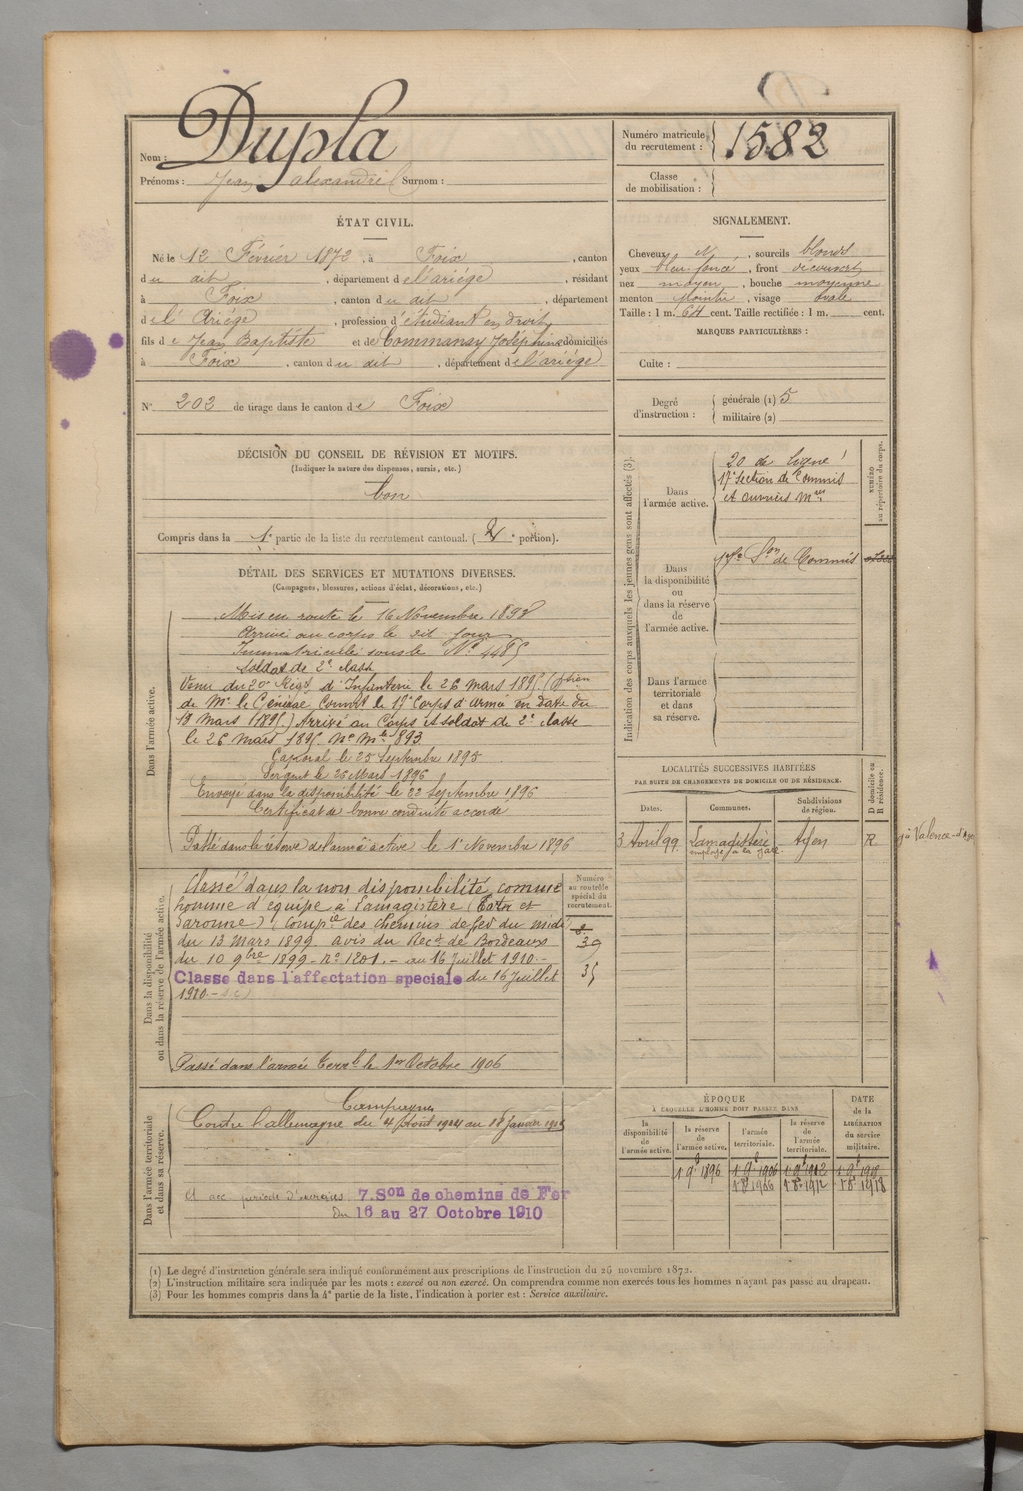 Nom : Dupla
Prénoms : Jean Alexandre Surnom :
Numéro matricule du recrutement : 1582
Classe de mobilisation :
ÉTAT CIVIL.
Né le 12 Février 1872, à Foix, canton
du dit, département de l'ariége, résidant
à Foix, canton du dit, département
de l'Ariége, profession d'étudiant en droit,
fils de Jean Baptiste et de Commansy Joséphine domiciliés
à Foix, canton du dit, département de l'ariége
No 202 de tirage dans le canton de Foix
SIGNALEMENT.
Cheveux N, sourcils blonds
yeux bleu foncé, front découvert
nez moyen, bouche moyenne
menton, visage ovale
Taille : 1 m. 64 cent. Taille rectifiée : 1 m. cent.
MARQUES PARTICULIÈRES :
Culte :
Degré d'instruction : générale (1) 5
militaire (2)
DÉCISION DU CONSEIL DE RÉVISION ET MOTIFS.
(Indiquer la nature des dispenses, sursis, etc.)
bon
Compris dans la 1e partie de la liste du recrutement cantonal. (2e portion).
DÉTAIL DES SERVICES ET MUTATIONS DIVERSES.
(Campagnes, blessures, actions d'éclat, décorations, etc.)
Dans l'armée active.
Mis en route le 16 Novembre 1893
Arrivé au corps le dit jour
Immatriculé sous le No 4485
Soldat de 2e classe
Venu du 20e Régt d'Infanterie le 26 mars 1895 (
de Mr le Général Commt le 17e Corps d'Armée en date du
19 Mars 1895.) Arrivé au Corps et soldat de 2e classe
le 26 mars 1895 No Mle 893
Caporal le 25 Septembre 1895
Sergent le 26 Mars 1896
Envoyé dans la disponibilité le 22 septembre 1896
Certificat de bonne conduite accordé
Passé dans la réserve de l'armée active le 1er Novembre 1896
Dans la disponibilité ou dans la réserve de l'armée active.
Classé dans la non disponibilité, comme
homme d'équipe à Lamagistère (Tarn et
Garonne) (Compie des chemins de fer du midi
du 13 Mars 1899 avis du Rect de Bordeaux
du 10 9bre 1899 - No 1201. - au 16 Juillet 1910. -
Classe dans l'affectation speciale du 16 Juillet
1910. -
Passé dans l'armée Terrle le 1er Octobre 1906
Numéro au contrôle spécial du recrutement.
39
35
Dans l'armée territoriale et dans sa réserve.
Campagne
Contre l'allemagne du 4 Aout 1914 au 18 Janvier 1919
A acc. période d'exercices 7.Son de chemins de Fer
du 16 au 27 Octobre 1910
Indication des corps auxquels les jeunes gens sont affectés (3).
Dans l'armée active.
20 de Ligne
17e Section de Commis
et ouvriers Mres
NUMÉRO au répertoire du corps.
Dans la disponibilité ou dans la réserve de l'armée active.
17e Son de Commis
Dans l'armée territoriale et dans sa réserve.
LOCALITÉS SUCCESSIVES HABITÉES
PAR SUITE DE CHANGEMENTS DE DOMICILE OU DE RÉSIDENCE.
Dates. Communes. Subdivisions de région. D domicile ou R résidence.
3 Avril 99. Lamagistère Agen R. Valence-d'Agen
employé à la gare
ÉPOQUE
À LAQUELLE L'HOMME DOIT PASSER DANS
DATE de la LIBÉRATION du service militaire.
la disponibilité de l'armée active. la réserve de l'armée active. l'armée territoriale. la réserve de l'armée territoriale.
1 9b 1896 1 9b 1906 1 9b 1912 1 9b 1918
1 8b 1906 1 8b 1912 1 8b 1918
(1) Le degré d'instruction générale sera indiqué conformément aux prescriptions de l'instruction du 26 novembre 1872.
(2) L'instruction militaire sera indiquée par les mots : exercé ou non exercé. On comprendra comme non exercés tous les hommes n'ayant pas passé au drapeau.
(3) Pour les hommes compris dans la 4e partie de la liste, l'indication à porter est : Service auxiliaire.